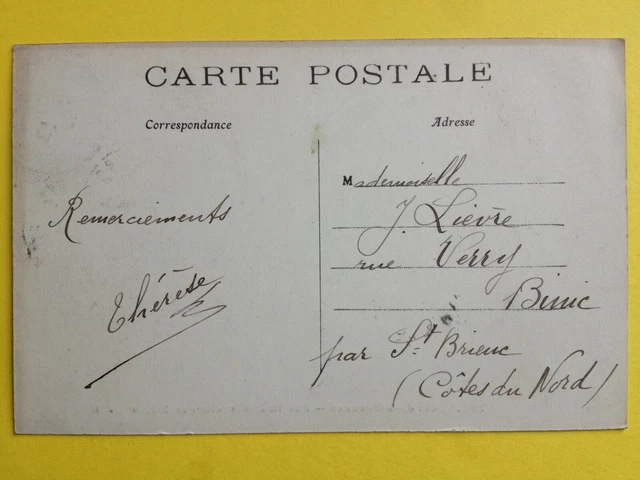 CARTE POSTALE
Correspondance
Adresse
Remerciements
Thérèse
Mademoiselle
J. Lièvre
rue Verry
Binic
par St Brieuc
(Côtes du Nord)